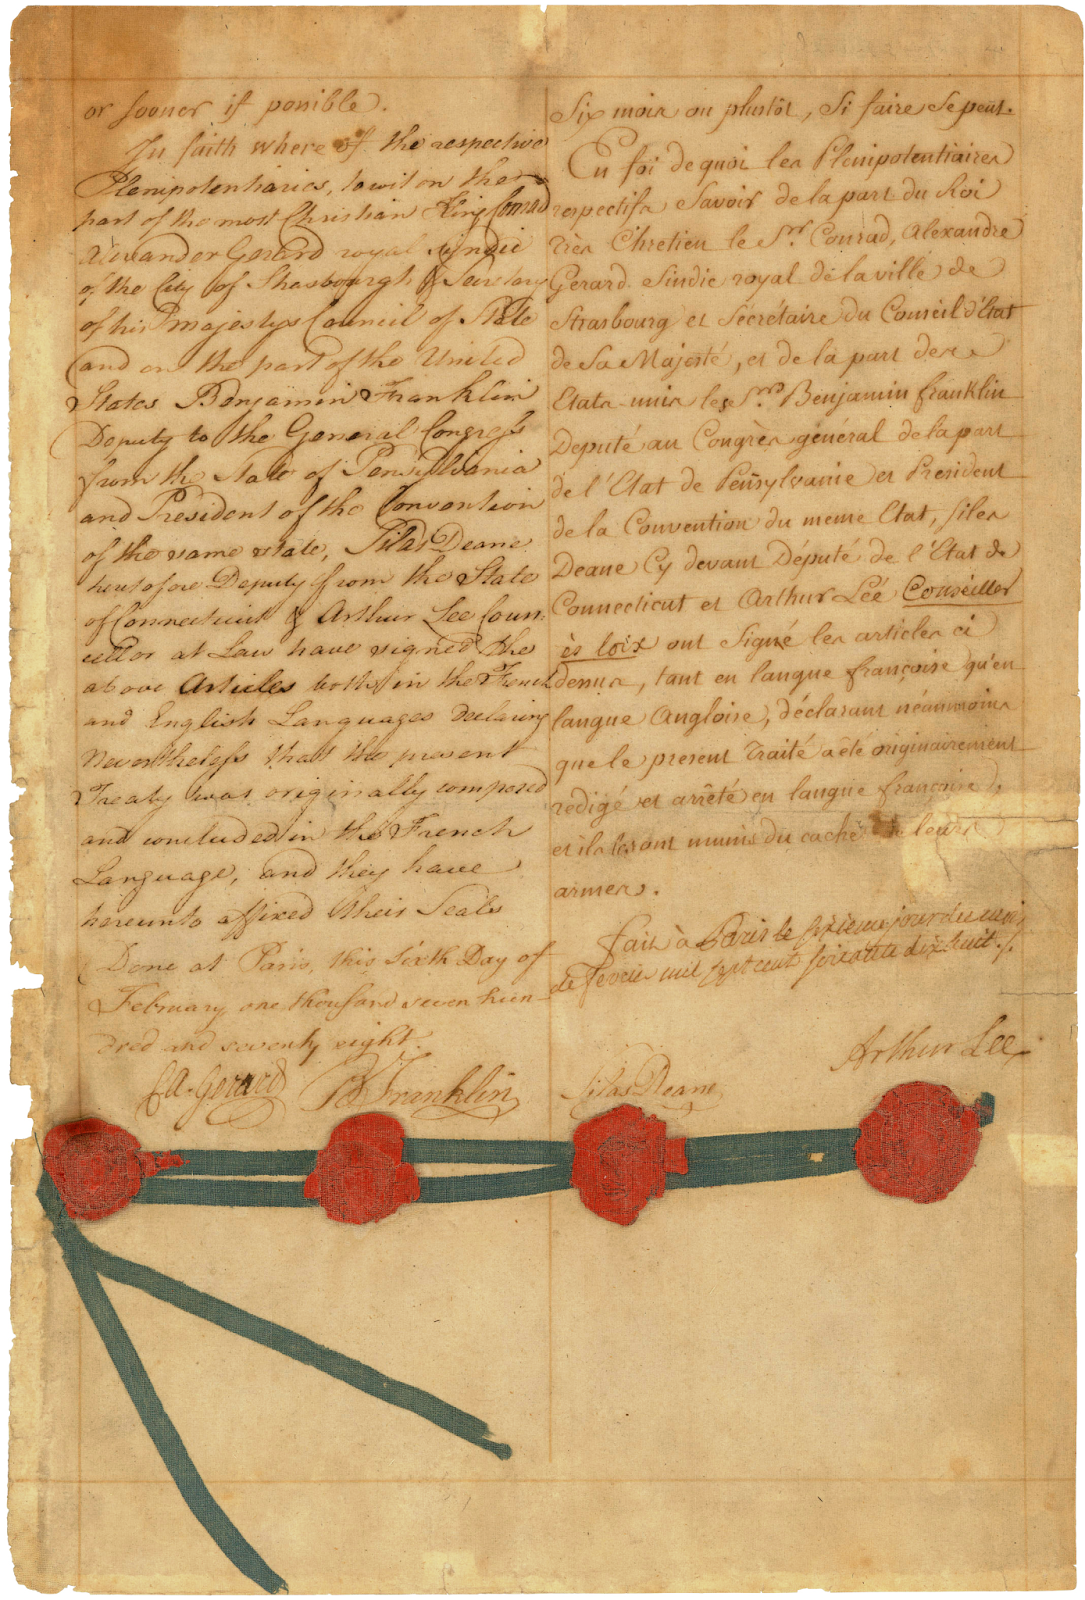 or sooner if possible.
In faith where of the respective
Plenipotentiaries, to wit on the
part of the most Christian King Conrad
Alexander Gerard royal syndic
of the City of Strasbourgh & Secretary
of his majestys Council of State
and on the part of the United
States Benjamin Franklin
Deputy to the General Congress
from the State of Pensylvania
and President of the Convention
of the same state, Silas Deane
heretofore Deputy from the State
of Connecticut & Arthur Lee Coun-
cellor at Law have signed the
above Articles both in the French
and English Languages declaring
Nevertheless that the present
Treaty was originally composed
and concluded in the French
Language, and they have
hereunto affixed their Seals
Done at Paris, this sixth Day of
February, one thousand seven hun-
dred and seventy eight.
CA. Gerard B Franklin
six mois ou plustôt, Si faire Se peut.
En foi de quoi les Plenipotentiaires
respectifs Savoir de la part du Roi
très Chretien le Sr. Conrad, Alexandre
Gerard. Sindic royal de la ville de
Strasbourg et Sécrétaire du Conseil d'Etat
de Sa Majesté, et de la part des
Etats unis les Srs. Benjamin franklin
Deputé au Congrès général de la part
de l'Etat de Pensylvanie et President
de la Convention du meme Etat, Silas
Deane Cy devant Député de l'Etat de
Connecticut et Arthur Léé Conseiller
ès loix ont Signé les articles ci
dessus, tant en langue françoise qu'en
langue Angloise, déclarant néanmoins
que le present Traité a été originairement
redigé et arrêté en langue françoise,
et ils les ont munis du cachet de leurs
armes.
fait à Paris le sixieme jour du mois
de fevrier mil sept cent soixante dix huit.
Silas Deane
Arthur Lee